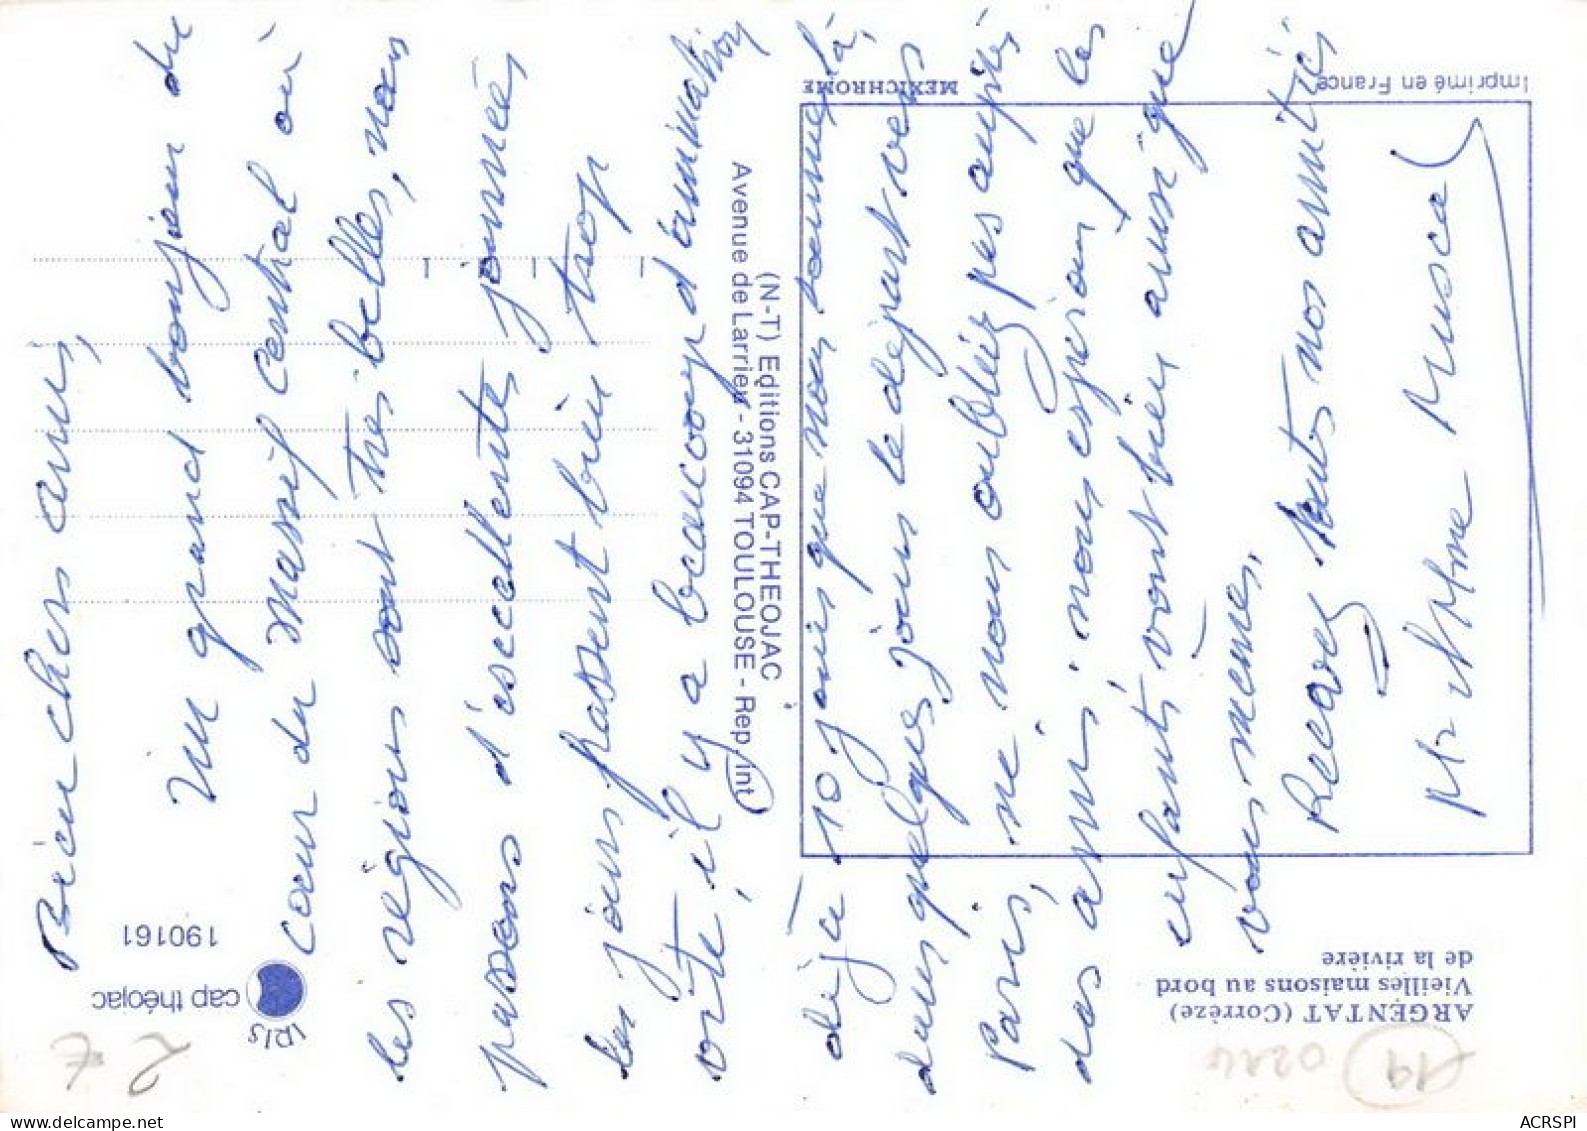 Bien chers amis,
Un grand bonjour du
cœur du Massif Central où
les régions sont très belles, nous
passons d'excellentes journées
les jours passent bien trop
vite, il y a beaucoup d'animation
déjà 10 jours que nous sommes là,
dans quelques jours le départ vers
Paris, ne nous oubliez pas auprès
des amis, nous espérons que les
enfants vont bien ainsi que
vous mêmes.
Recevez toutes nos amitiés
Mr & Mme Muscat
(N-T) Editions CAP-THEOJAC
Avenue de Larrieu - 31094 TOULOUSE - Rep. int
MEXICHROME
Imprimé en France
ARGENTAT (Corrèze)
Vieilles maisons au bord
de la rivière
iris
cap théojac
190161
2 €
19
0214
ACRSPI